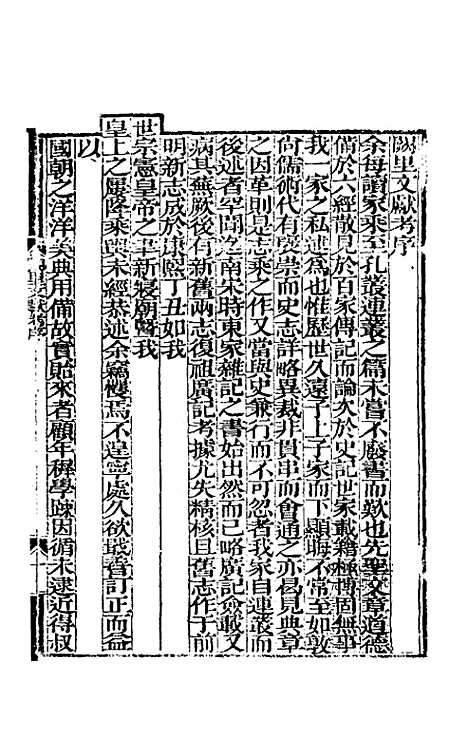 闕里文獻考序
余每讀家乘至孔叢連叢之篇未嘗不廢書而歎也先聖文章道德
備於六經散見於百家傳記而論次於史記世家載籍極博固無事
我一家之私述爲也惟歷世久遠子上子家而下顯晦不常至如敦
尚儒術代有襃崇而史志詳略異裁非貫串而會通之亦曷見典章
之因革則是志乘之作又當與史兼行而不可忽者我家自連叢而
後述者罕聞迄南宋時東家雜記之書始出然而已略廣記僉載又
病其蕪厥後有新舊兩志復祖廣記考據尤失精核且舊志作于前
明新志成於康熙丁丑如我
世宗憲皇帝之聿新寢廟曁我
皇上之屢降乘輿未經恭述余竊懼焉不遑寧處久欲戢書訂正而益
以
國朝之洋洋美典用備故實貽來者顧年穉學疎因循未逮近得叔